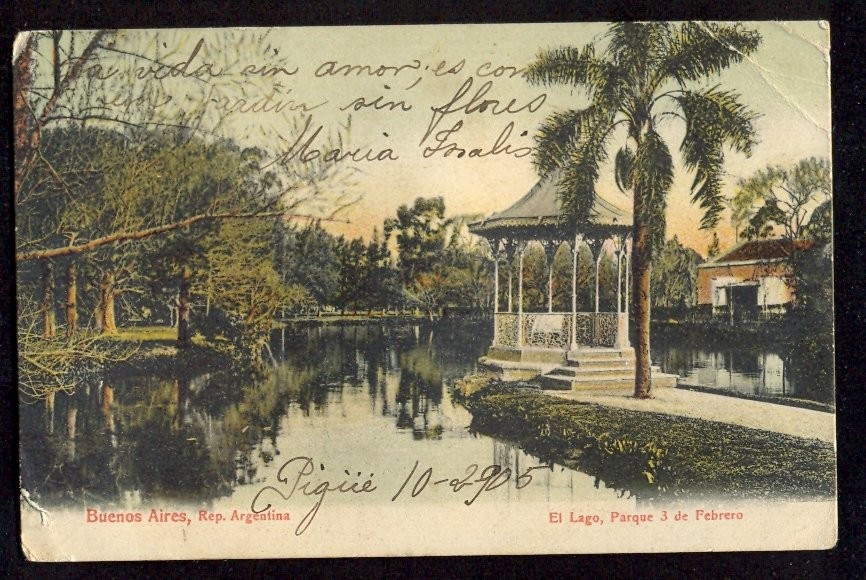 La vida sin amor, es con
un jardin sin flores
Maria
Pigüé 10-2905
Buenos Aires, Rep. Argentina
El Lago, Parque 3 de Febrero